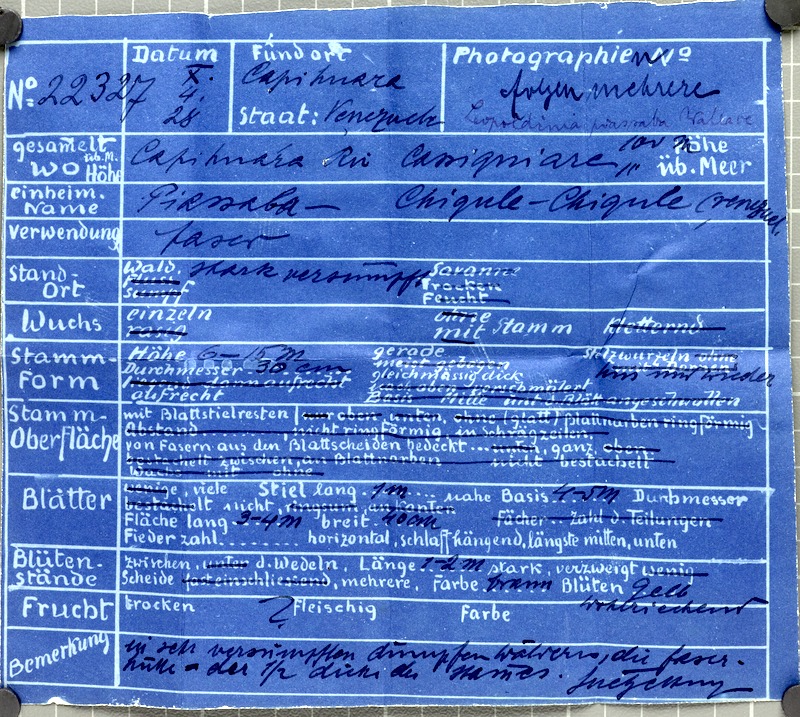 Nº 22327
Datum
X.
4.
28
Fundort
Capihuara
Staat: Venezuela
Photographie Nº
folgen mehrere
Leopoldinia piassaba Wallace
gesamelt wo üb.M. Höhe
Capihuara Rio Cassiquiare 100 m Höhe üb. Meer
einheim. Name
Piassaba — Chiqule-Chiqule (Venezuel.
Verwendung
faser
Stand-Ort
Wald. stark versumpft Savanne
Fluss Trocken
Sumpf Feucht
Wuchs
einzeln ohne
rasig mit Stamm kletternd
Stamm-Form
Höhe 6-15 m gerade Stelzwurzeln ohne
Durchmesser 30 cm meist gebogen
gleichmässig dick
aufrecht
Stamm-Oberfläche
mit Blattstielresten oben unten, ohne (glatt) Blattnarben ringförmig
Abstand ........ nicht ringförmig, in Schrägzeilen
von Fasern aus den Blattscheiden bedeckt ... unten, ganz, oben
bestachelt zwischen, an Blattnarben nicht bestachelt
Wachs mit ohne
Blätter
wenige, viele Stiel lang 1m .... nahe Basis 4-5m Durchmesser
nicht, ringsum
Fläche lang 3-4m breit 40cm Fächer .. Zahl d. Teilungen
Fieder zahl ........ horizontal, schlaff hängend, längste mitten, unten
Blüten-stände
zwischen, unter d. Wedeln, Länge 1-2 m stark, verzweigt wenig
Scheide, mehrere, Farbe braun Blüten gelb
wohlriechend
Frucht
trocken ? Fleischig Farbe
Bemerkung
in sehr versumpften dumpfen Wäldern, die faser-
hülle = der 1/2 dicke des Stames.